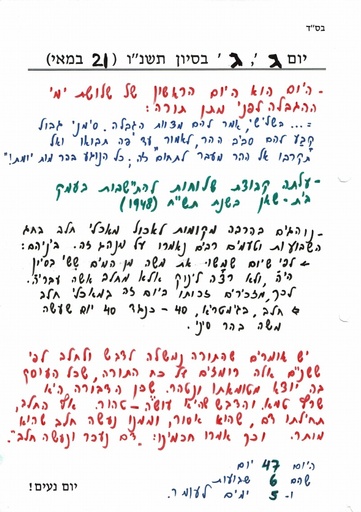 בס"ד
יום ג', ג' בסיון תשנ"ו (21 במאי)
- היום הוא היום הראשון של שלושת ימי
ההגבלה לפני מתן תורה:
=... בשלישי, אמר להם מצוות הגבלה. סימני גבול
קבע להם סביב ההר, לאמור "עד פה תבואו ואל
תקרבו אל ההר מעבר לתחום זה, כל הנוגע בהר מות יומת!"
- עלתה קבוצת שלוחות להתישבות בעמק
בית-שאן בשנת תש"ח (1948)
- נוהגים בהרבה מקומות לאכול מאכלי חלב בחג
השבועות וטעמים רבים נאמרו על מנהג זה. ביניהם:
לפי שיום שמשו את משה מן המים ששי בסיון
היה, ולא רצה לינוק אלא מחלב אשה עבריה.
לכך, מזכירים זכותו ביום זה במאכלי חלב
חלב, בגימטריא, 40 - כנגד 40 יום שעשה
משה בהר סיני.
יש אומרים שהתורה נמשלה לדבש ולחלב לפי
ששנים אלה רומזים על כח התורה, שכל העוסק
בה יוצא מטומאתו ונטהר. שכן הדבורה, היא
שרץ טמא, והדבש שהיא עושה - טהור. אף החלב,
תחילתו דם, שהוא אסור, וממנו נעשה חלב שהוא
מותר. וכך אמרו חכמינו: "דם נעכר ונעשה חלב".
היום 47 יום
שהם 6 שבועות
ו- 5 ימים לעומר.
יום נעים!